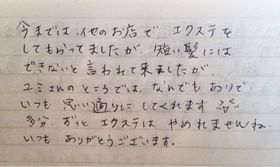 今までは、他のお店で エクステを
してもらってましたが 短い髪には
できないと言われて来ましたが
ユミさんのところでは、なんでもありで
いつも 思い通りにしてくれます
多分、ずっと エクステは やめれませんね
いつも ありがとうございます。